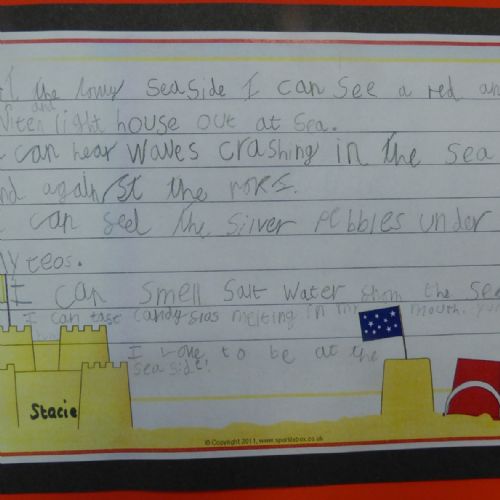 At the lovly seaside I can see a red an
and
witen light house out at sea.
I can hear waves crashing in the sea
nd against the roks.
I can seel the silver pebbles under
my teos.
I can smell salt water from the see
I can tast candy-floss melting in my mouth.
I love to be at the
sea side!
Stacie
© Copyright 2011, www.sparklebox.co.uk